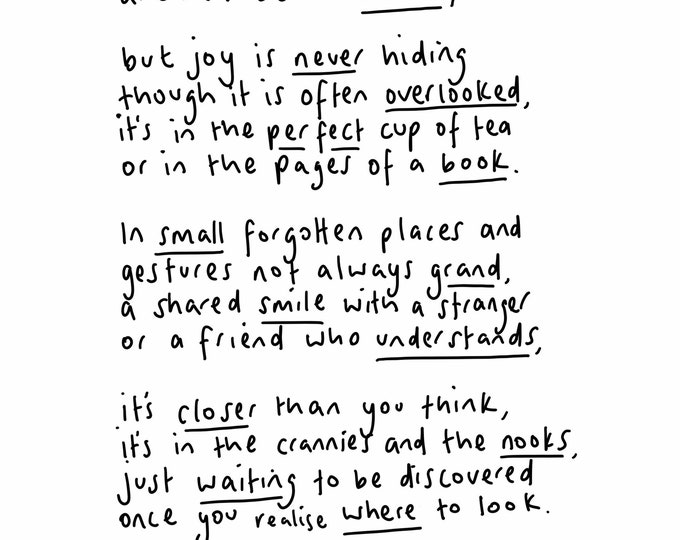 but joy is never hiding
though it is often overlooked,
it's in the perfect cup of tea
or in the pages of a book.
In small forgotten places and
gestures not always grand,
a shared smile with a stranger
or a friend who understands,
it's closer than you think,
it's in the crannies and the nooks,
just waiting to be discovered
once you realise where to look.